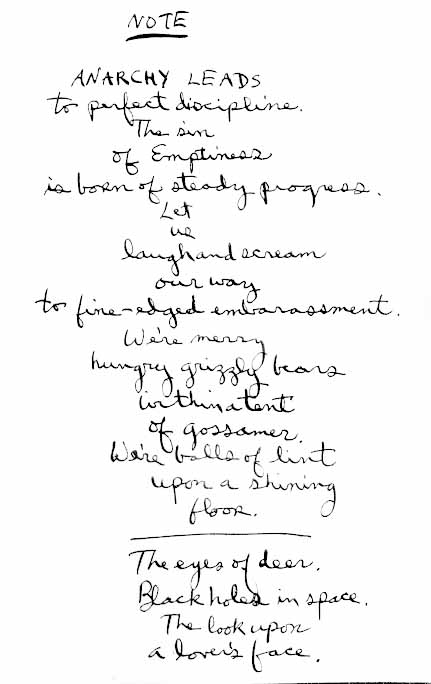 NOTE
ANARCHY LEADS
to perfect discipline.
The sin
of Emptiness
is born of steady progress.
Let
us
laugh and scream
our way
to fine-edged embarassment.
We're merry
hungry grizzly bears
within a tent
of gossamer.
We're balls of lint
upon a shining
floor.
The eyes of deer.
Black holes in space.
The look upon
a lover's face.